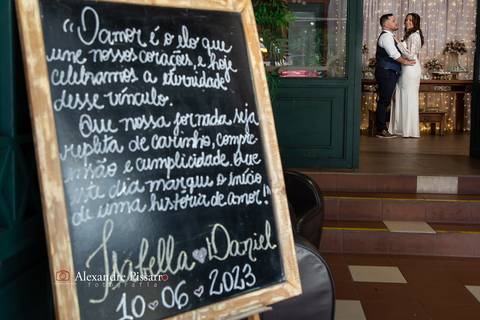 "O amor é o elo que
une nossos corações, e hoje
celebramos a eternidade
desse vínculo.
Que nossa jornada seja
repleta de carinho, compre-
ensão e cumplicidade. Que
este dia marque o início
de uma história de amor!"
Isabella Daniel
10 06 2023
Alexandre Pissarro
fotografia